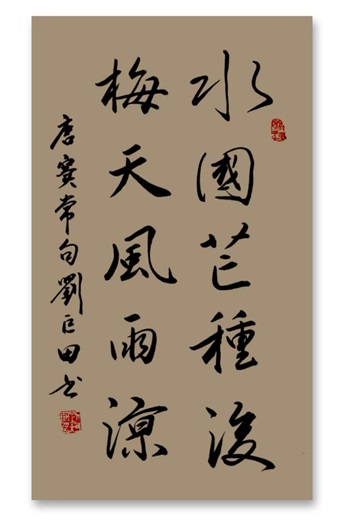 水國芒種後
梅天風雨涼
唐竇常句劉巨田書